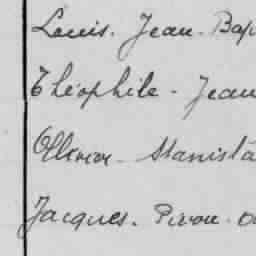 Louis. Jean. Bap
Théophile - Jean
Ollivier - Stanisla
Jacques. Pierre.